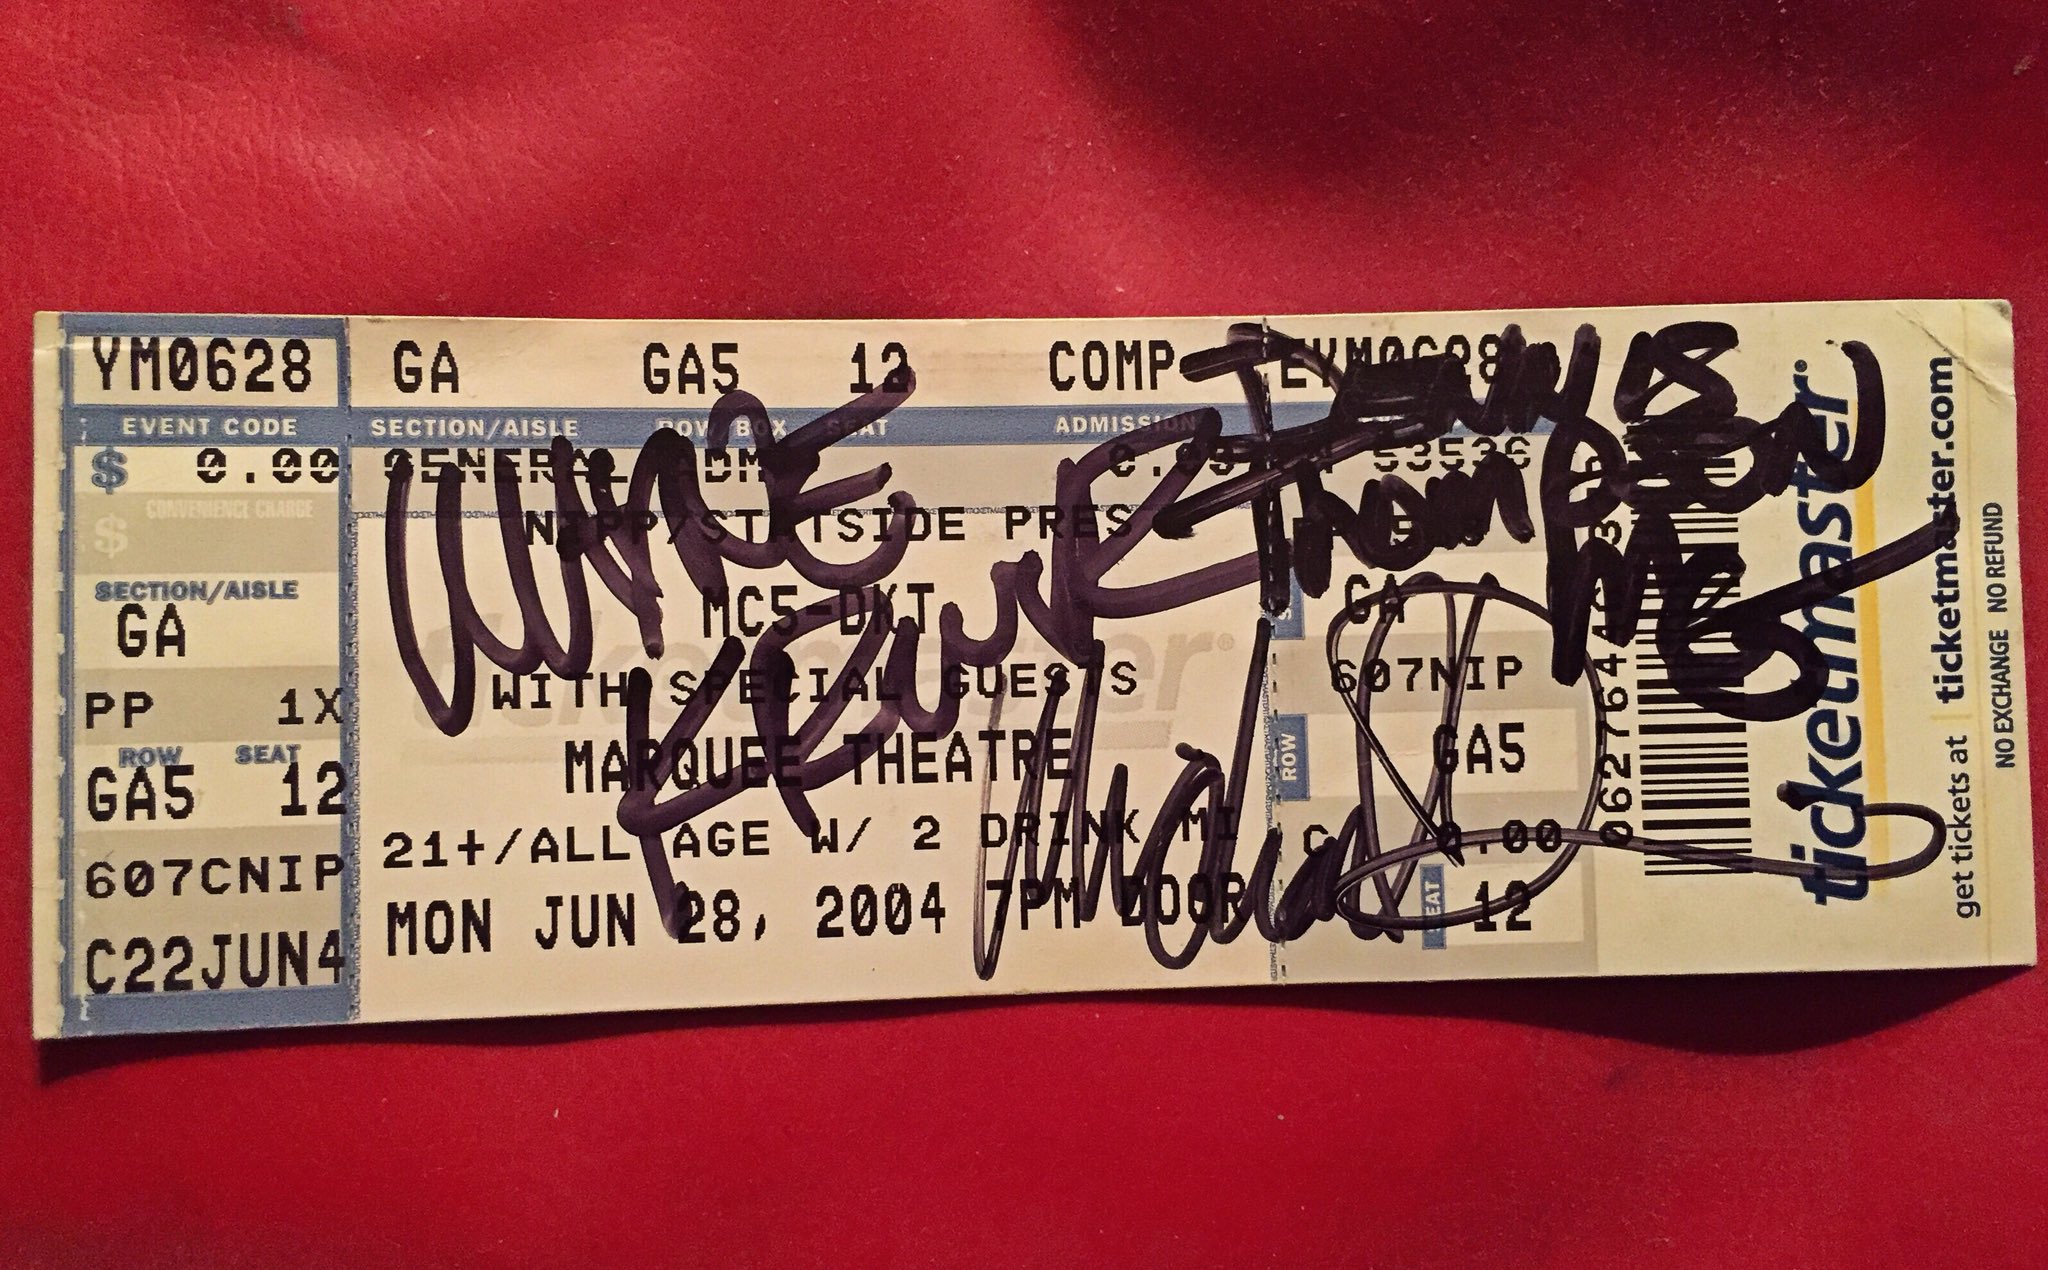 YM0628 GA GA5 12 COMP EYM0628
EVENT CODE SECTION/AISLE ROW/BOX SEAT ADMISSION
$ 0.00 GENERAL ADM 53536
$ CONVENIENCE CHARGE
NIPP/STATSIDE PRES
SECTION/AISLE
GA MC5-DKT GA
PP 1X WITH SPECIAL GUESTS 607NIP
ROW SEAT
GA5 12 MARQUEE THEATRE ROW GA5
607CNIP 21+/ALL AGE W/ 2 DRINK MI C 0.00
C22JUN4 MON JUN 28, 2004 7PM DOOR SEAT 12
WAYNE
KRAMER
DENNIS
THOMPSON
MC5
Michael
ticketmaster®
get tickets at ticketmaster.com
NO EXCHANGE NO REFUND
ticketmaster®